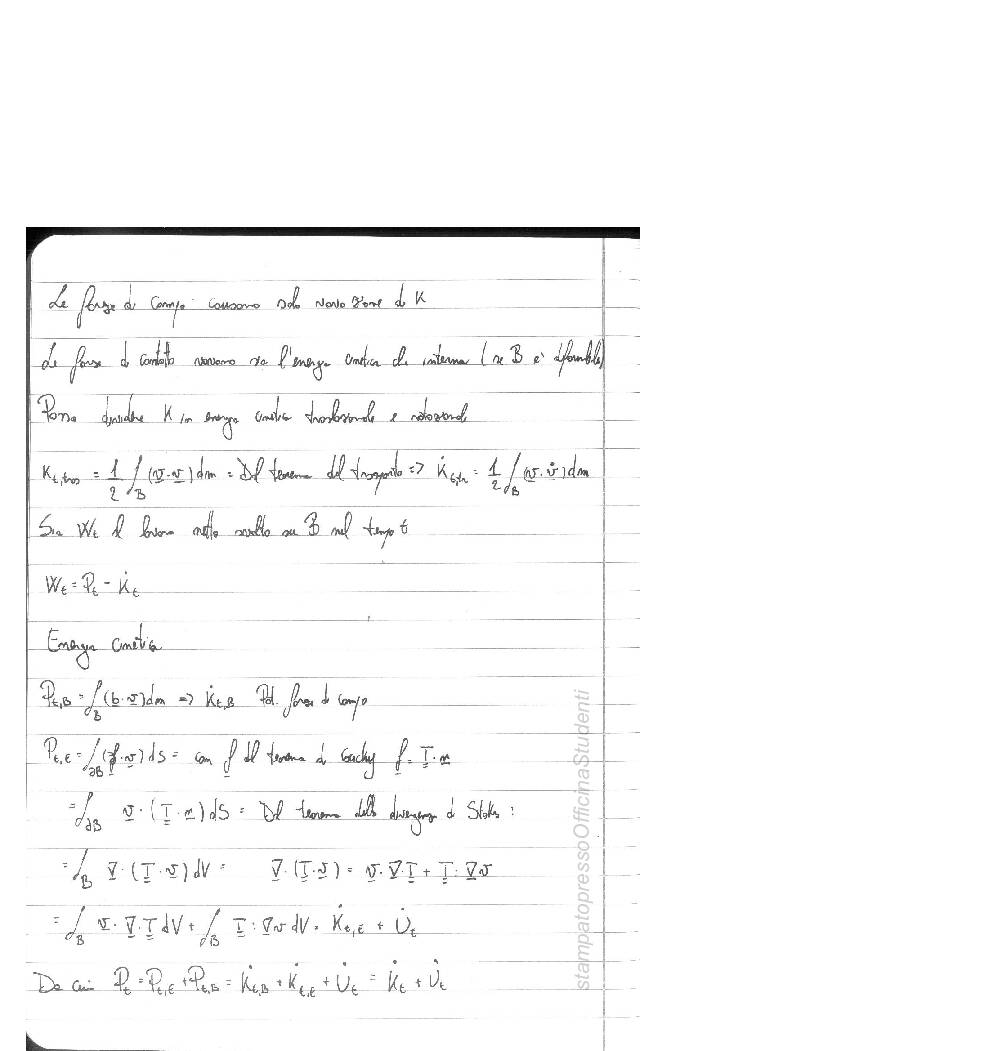 Le forze di campo causano solo variazione di K
Le forze di contatto variano sia l'energia cinetica che interna (se B è deformabile)
Posso dividere K in energia cinetica traslazionale e rotazionale
K_{t,tras} = 1/2 ∫_B (v·v) dm = Dal teorema del trasporto => K̇_{t,tr} = 1/2 ∫_B (v·v̇) dm
Sia W_t il lavoro netto svolto su B nel tempo t
W_t = P_t - K̇_t
Energia cinetica
P_{t,B} = ∫_B (b·v) dm => K̇_{t,B} Pot. forze di campo
P_{t,E} = ∫_{∂B} (f·v) dS = con f dal teorema di Cauchy f = T·n
= ∫_{∂B} v·(T·n) dS = Dal teorema della divergenza di Stokes :
= ∫_B ∇·(T·v) dV = ∇·(T·v) = v·∇·T + T:∇v
= ∫_B v·∇·T dV + ∫_B T:∇v dV = K̇_{t,E} + U̇_t
Da cui P_t = P_{t,E} + P_{t,B} = K̇_{t,B} + K̇_{t,E} + U̇_t = K̇_t + U̇_t
stampatopressoOfficinaStudenti